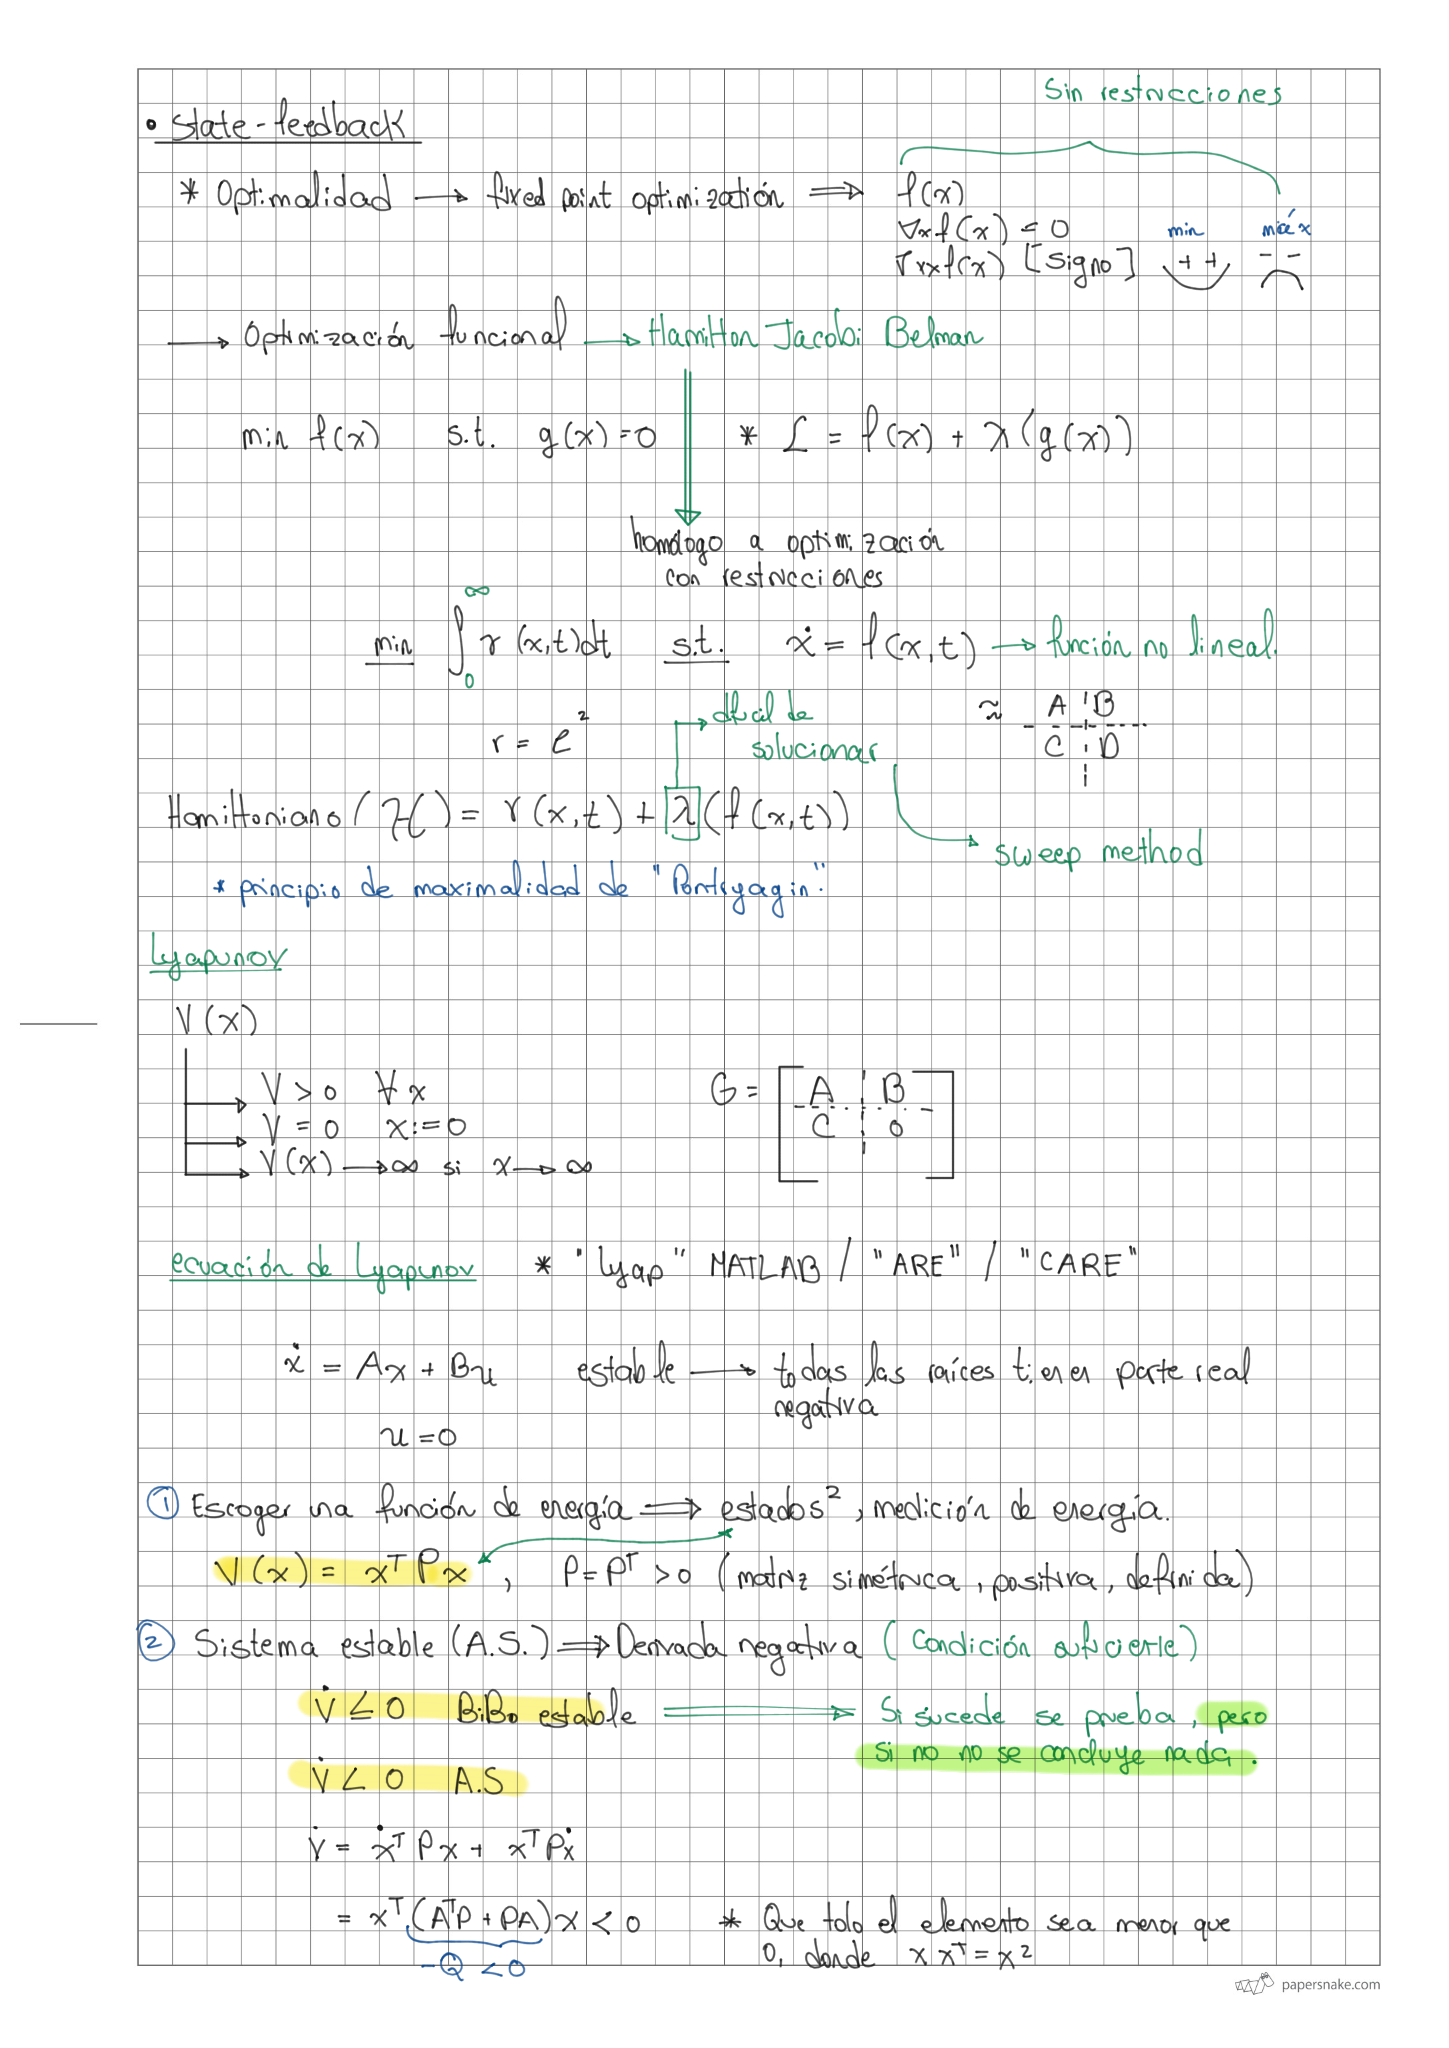 Sin restricciones
• State-feedback
* Optimalidad → fixed point optimizatión ⟹ f(x)
∇xf(x) = 0 min máx
∇xxf(x) [Signo] + + - -
→ Optimización funcional → Hamilton Jacobi Belman
min f(x) s.t. g(x)=0 * L = f(x) + λ(g(x))
homólogo a optimización
con restricciones
min ∫₀^∞ r(x,t)dt s.t. ẋ = f(x,t) → función no lineal.
r = e² → difícil de solucionar ≈ A B
C D
Hamiltoniano (H) = r(x,t) + λ(f(x,t))
→ sweep method
* principio de maximalidad de "Pontryagin".
Lyapunov
V(x)
V > 0 ∀x G = [ A B
V = 0 x:=0 C 0 ]
V(x) → ∞ si x → ∞
ecuación de Lyapunov * "lyap" MATLAB / "ARE" / "CARE"
ẋ = Ax + Bu estable → todas las raíces tienen parte real
negativa
u = 0
① Escoger una función de energía ⟹ estados², medición de energía.
V(x) = xᵀPx , P=Pᵀ >0 (matriz simétrica, positiva, definida)
② Sistema estable (A.S.) ⟹ Derivada negativa (Condición suficiente)
V̇ ≤ 0 BiBo estable ⟹ Si sucede se prueba, pero
si no no se concluye nada.
V̇ < 0 A.S
V̇ = ẋᵀPx + xᵀPẋ
= xᵀ(AᵀP + PA)x < 0 * Que todo el elemento sea menor que
-Q < 0 0, donde x xᵀ = x²
papersnake.com